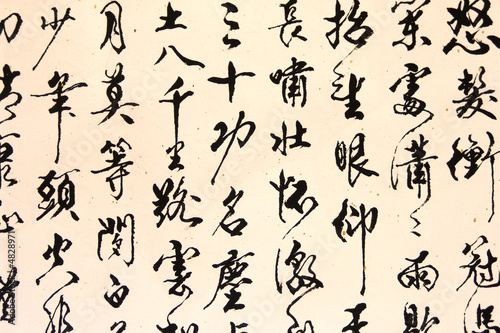 怒髮衝冠
處瀟〻雨歇
抬望眼仰天
長嘯壯懷激
三十功名塵與
土八千里路雲和
月莫等閒白了
少年頭空悲